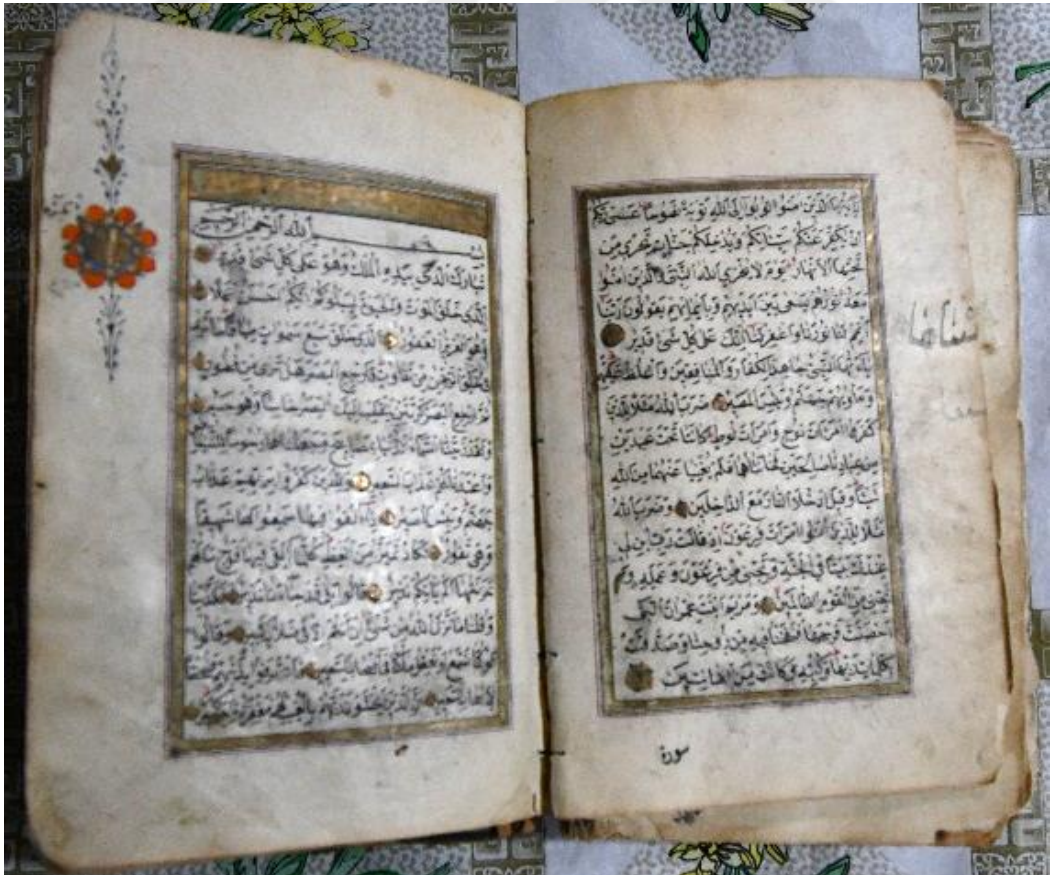 يا ايها الذين امنوا توبوا الى الله توبة نصوحا عسى ربكم
ان يكفر عنكم سيئاتكم ويدخلكم جنات تجري من
تحتها الانهار يوم لا يخزي الله النبي والذين امنوا
معه نورهم يسعى بين ايديهم وبايمانهم يقولون ربنا
اتمم لنا نورنا واغفر لنا انك على كل شئ قدير
يا ايها النبي جاهد الكفار والمنافقين واغلظ عليهم
وماويهم جهنم وبئس المصير ضرب الله مثلا للذين
كفروا امرات نوح وامرات لوط كانتا تحت عبدين
من عبادنا صالحين فخانتاهما فلم يغنيا عنهما من الله
شيئا وقيل ادخلا النار مع الداخلين وضرب الله
مثلا للذين امنوا امرات فرعون اذ قالت رب ابن لي
عندك بيتا في الجنة ونجني من فرعون وعمله و
نجني من القوم الظالمين ومريم ابنت عمران التي
احصنت فرجها فنفخنا فيه من روحنا وصدقت
بكلمات ربها وكتبه وكانت من القانتين
سورة
بسم الله الرحمن الرحيم
تبارك الذي بيده الملك وهو على كل شئ قدير
الذي خلق الموت والحيوة ليبلوكم ايكم احسن عملا
وهو العزيز الغفور الذي خلق سبع سموات طباقا ما ترى
في خلق الرحمن من تفاوت فارجع البصر هل ترى من فطور
ثم ارجع البصر كرتين ينقلب اليك البصر خاسئا وهو حسير
ولقد زينا السماء الدنيا بمصابيح وجعلناها رجوما للشياطين
واعتدنا لهم عذاب السعير وللذين كفروا بربهم عذاب
جهنم وبئس المصير اذا القوا فيها سمعوا لها شهيقا
وهي تفور تكاد تميز من الغيظ كلما القي فيها فوج سالهم
خزنتها الم ياتكم نذير قالوا بلى قد جاءنا نذير فكذبنا
وقلنا ما نزل الله من شئ ان انتم الا في ضلال كبير وقالوا
لو كنا نسمع او نعقل ما كنا في اصحاب السعير فاعترفوا بذنبهم فسحقا
لاصحاب السعير ان الذين يخشون ربهم بالغيب لهم مغفرة واجر كبير